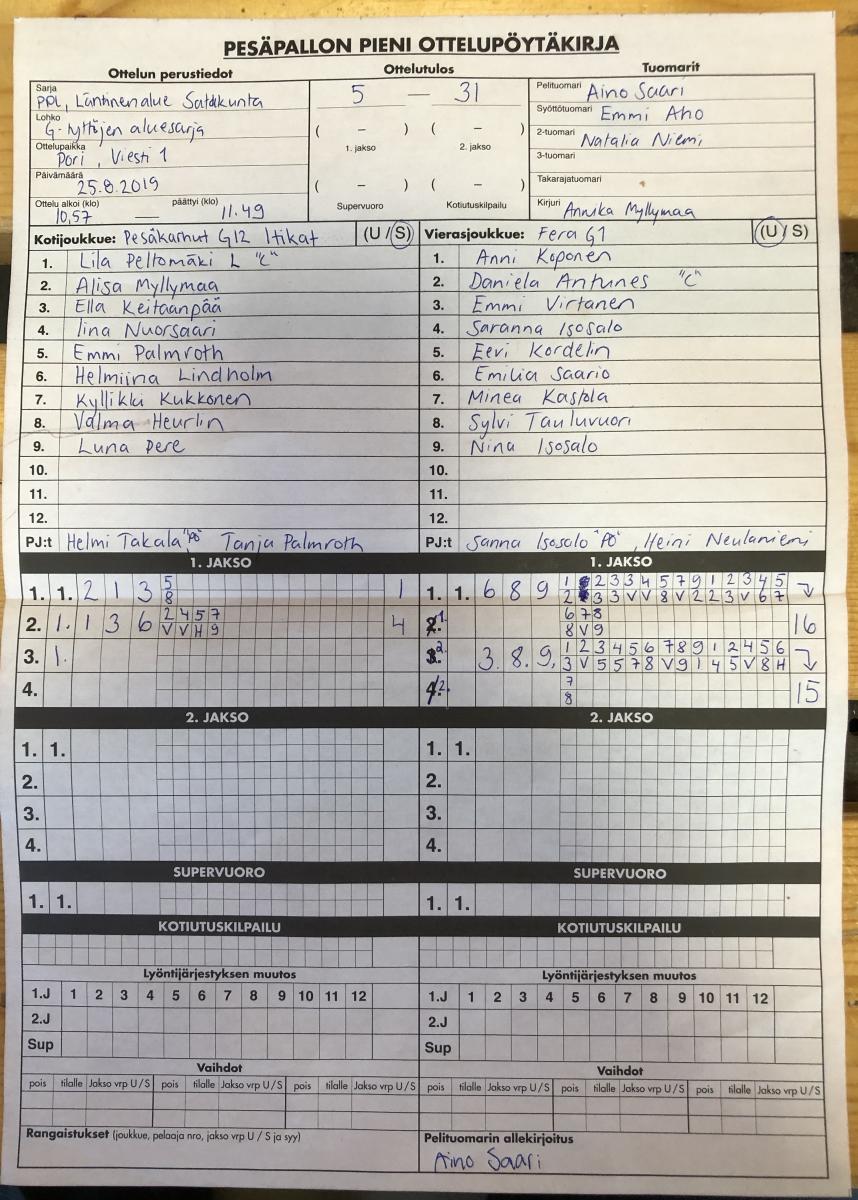 PESÄPALLON PIENI OTTELUPÖYTÄKIRJA
Ottelun perustiedot
Ottelutulos
Tuomarit
Sarja
PPL, Läntinen alue Satakunta
Lohko
G-tyttöjen aluesarja
Ottelupaikka
Pori, Viesti 1
Päivämäärä
25.8.2019
Ottelu alkoi (klo) päättyi (klo)
10.57 — 11.49
5 — 31
( – ) ( – )
1. jakso 2. jakso
( – ) ( – )
Supervuoro Kotiutuskilpailu
Pelituomari Aino Saari
Syöttötuomari Emmi Aho
2-tuomari Natalia Niemi
3-tuomari
Takarajatuomari
Kirjuri Annika Myllymaa
Kotijoukkue: Pesäkarhut G12 Itikat (U / S)
1. Lila Peltomäki L "C"
2. Alisa Myllymaa
3. Ella Keitaanpää
4. Iina Nuorsaari
5. Emmi Palmroth
6. Helmiina Lindholm
7. Kyllikki Kukkonen
8. Valma Heurlin
9. Luna Pere
10.
11.
12.
PJ:t Helmi Takala "PÖ" Tanja Palmroth
Vierasjoukkue: Fera G1 (U / S)
1. Anni Koponen
2. Daniela Antunes "C"
3. Emmi Virtanen
4. Saranna Isosalo
5. Eevi Kordelin
6. Emilia Saario
7. Minea Kastola
8. Sylvi Tauluvuori
9. Nina Isosalo
10.
11.
12.
PJ:t Sanna Isosalo "PÖ", Heini Neulaniemi
1. JAKSO
1. 1. 2 1 3 5 1
8
2. 1. 1 3 6 2 4 5 7 4
V V H 9
3. 1.
4.
1. JAKSO
1. 1. 6 8 9 1 2 3 3 4 5 7 9 1 2 3 4 5
2 3 3 V V 8 V 2 2 3 V 6 7
1. 6 7 8 16
8 V 9
2. 3. 8. 9, 1 2 3 4 5 6 7 8 9 1 2 4 5 6
3 V 5 5 7 8 V 9 1 4 5 V 8 H
2. 7 15
8
2. JAKSO
1. 1.
2.
3.
4.
2. JAKSO
1. 1.
2.
3.
4.
SUPERVUORO
1. 1.
SUPERVUORO
1. 1.
KOTIUTUSKILPAILU
KOTIUTUSKILPAILU
Lyöntijärjestyksen muutos
1.J 1 2 3 4 5 6 7 8 9 10 11 12
2.J
Sup
Lyöntijärjestyksen muutos
1.J 1 2 3 4 5 6 7 8 9 10 11 12
2.J
Sup
Vaihdot
pois tilalle Jakso vrp U / S pois tilalle Jakso vrp U / S pois tilalle Jakso vrp U / S
Vaihdot
pois tilalle Jakso vrp U / S pois tilalle Jakso vrp U / S pois tilalle Jakso vrp U / S
Rangaistukset (joukkue, pelaaja nro, jakso vrp U / S ja syy)
Pelituomarin allekirjoitus
Aino Saari